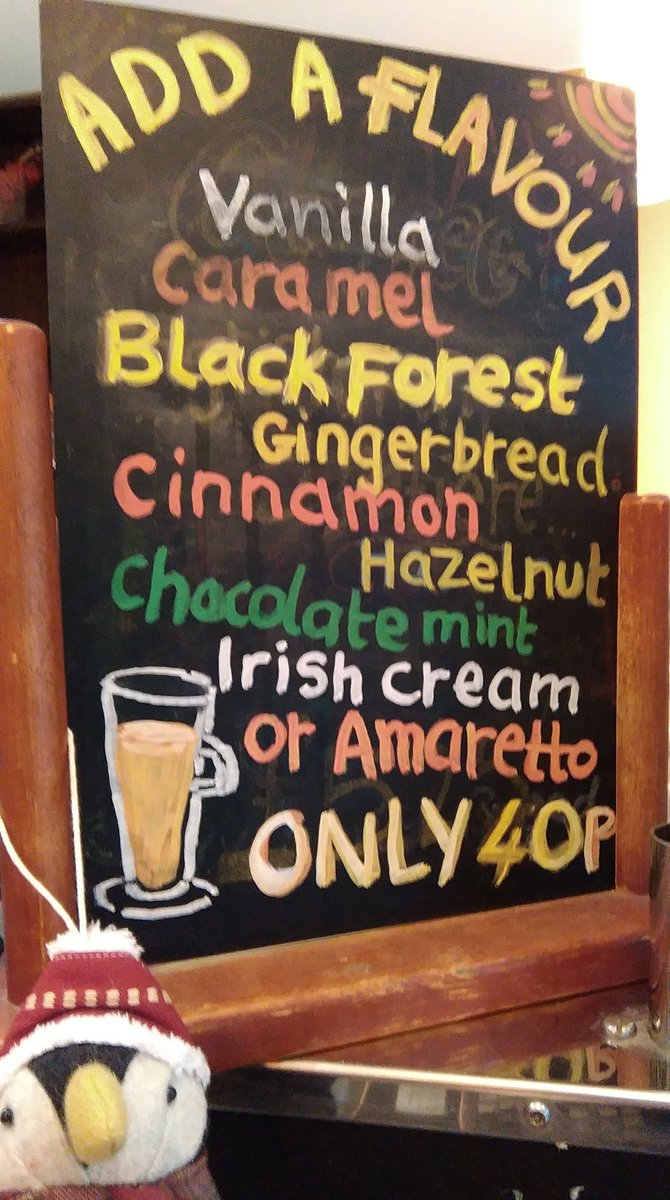 ADD A FLAVOUR
Vanilla
caramel
Black Forest
Gingerbread
cinnamon
Hazelnut
chocolate mint
Irish cream
or Amaretto
ONLY 40P